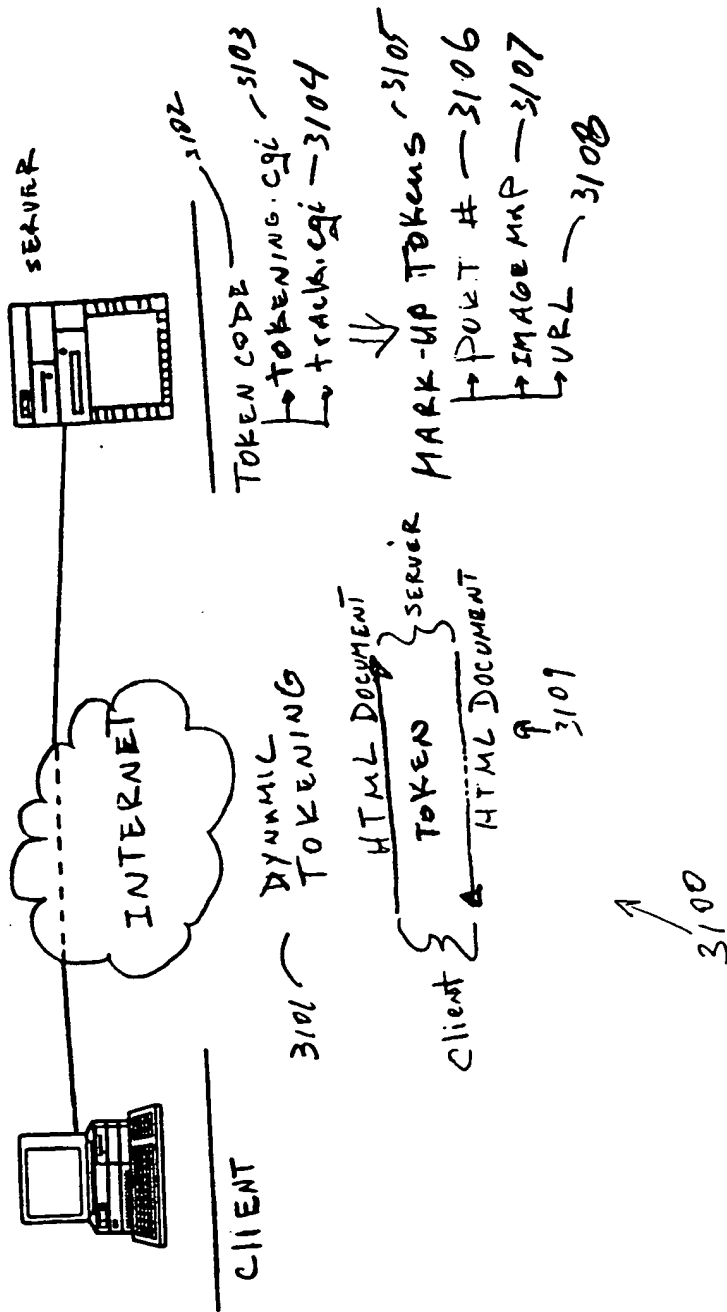 CLIENT
INTERNET
SERVER
3101
DYNAMIC
TOKENING
Client
HTML DOCUMENT
TOKEN
HTML DOCUMENT
SERVER
3109
TOKEN CODE 3102
TOKENING.cgi 3103
track.cgi 3104
MARK-UP TOKENS 3105
PORT # 3106
IMAGE MAP 3107
URL 3108
3100